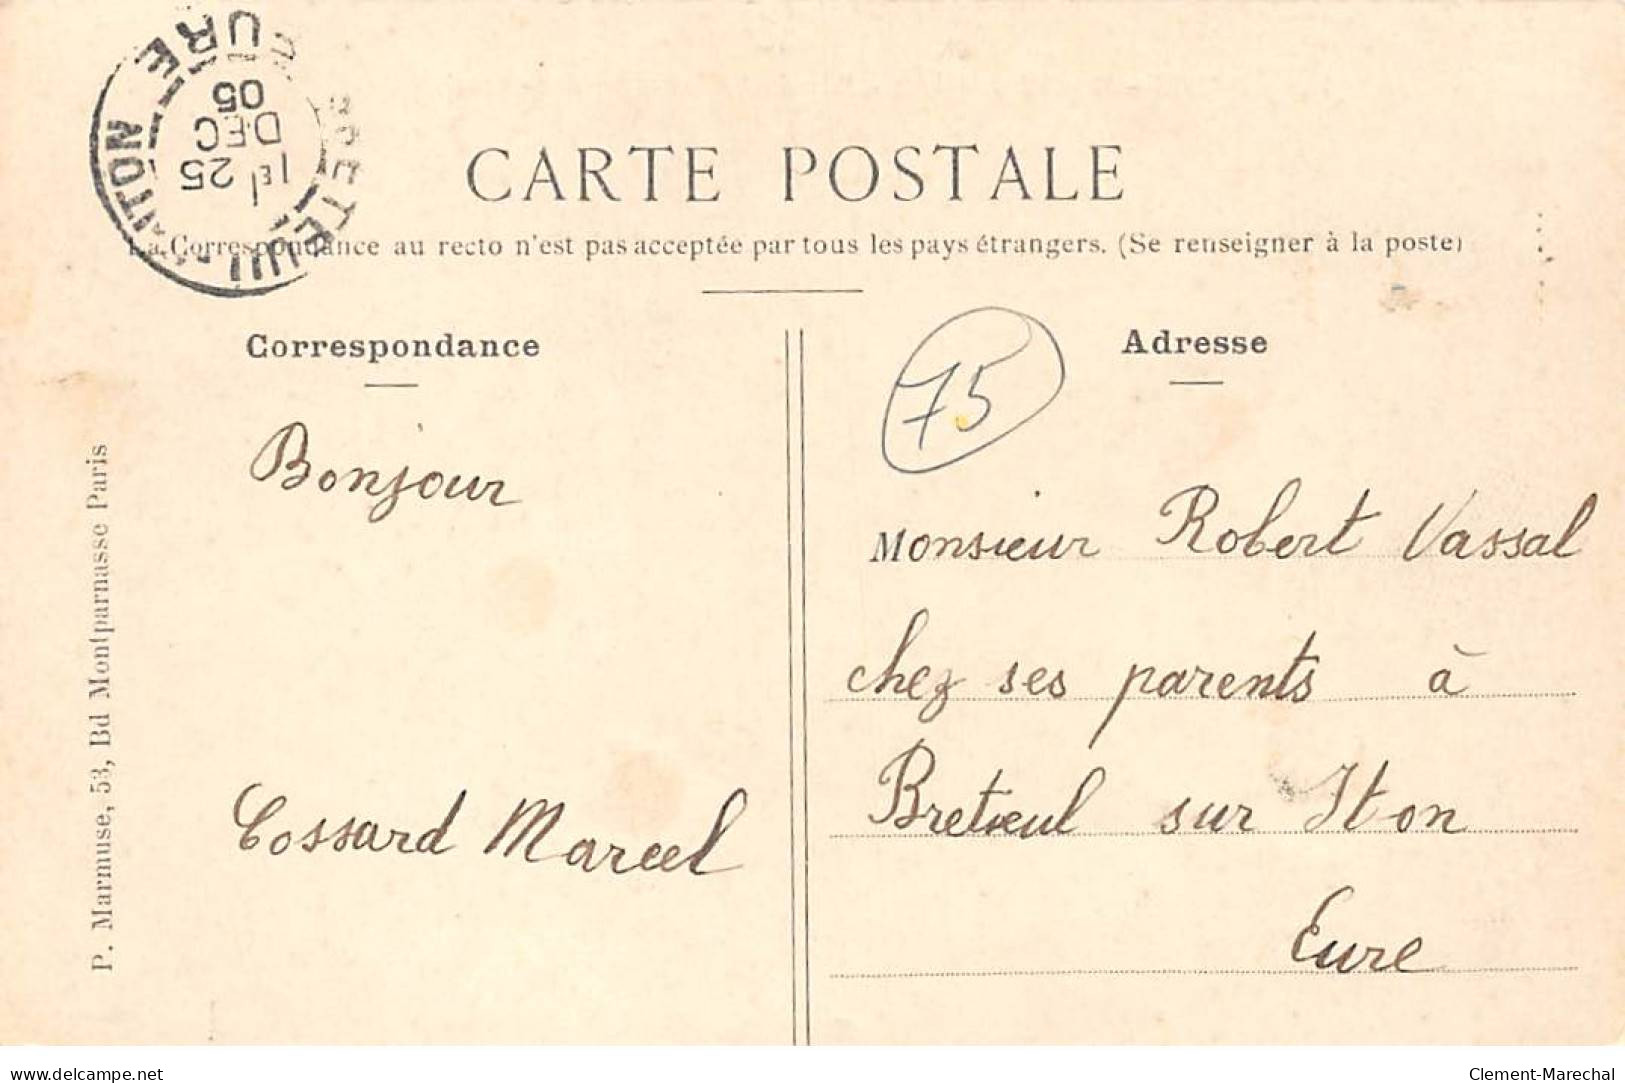 EURE
25
DEC
05
CARTE POSTALE
La Correspondance au recto n'est pas acceptée par tous les pays étrangers. (Se renseigner à la poste)
Correspondance
Bonjour
Cossard Marcel
P. Marmuse, 53, Bd Montparnasse Paris
75
Adresse
Monsieur Robert Vassal
chez ses parents à
Bretieul sur Iton
Eure
www.delcampe.net
Clement-Marechal